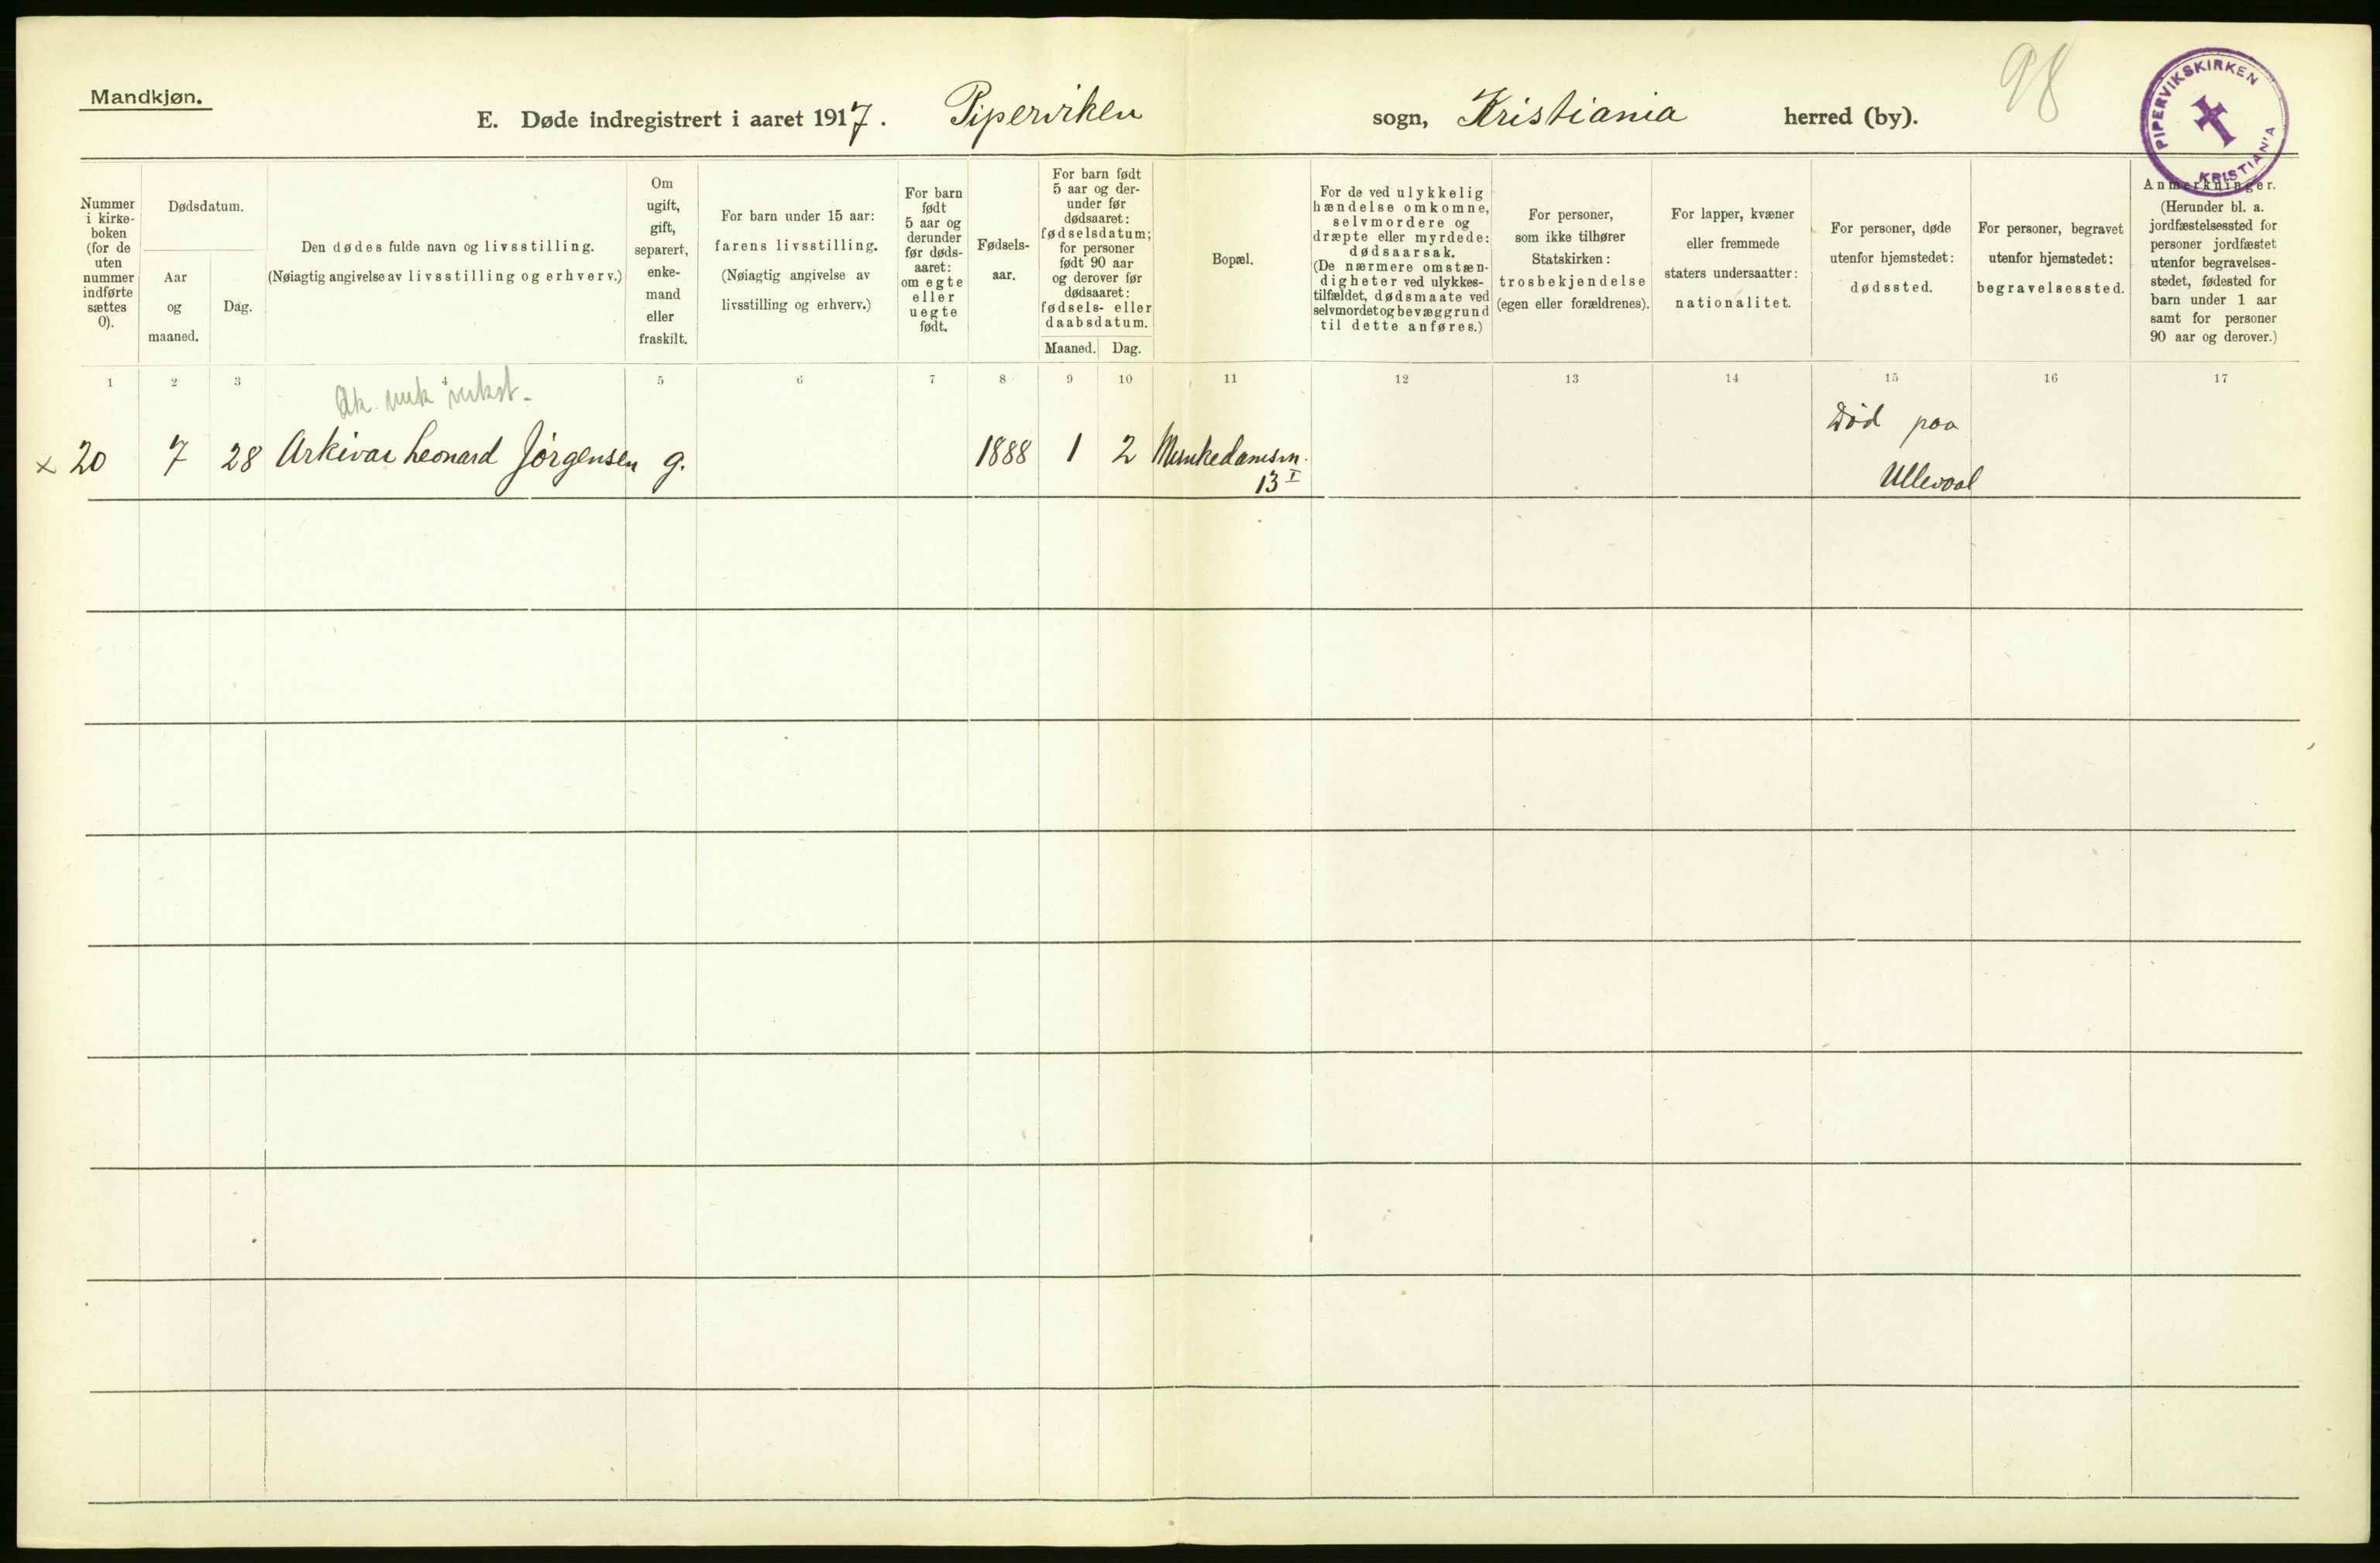 Mandkjøn.
E. Døde indregistrert i aaret 1917. Piperviken sogn, Kristiania herred (by).
98
PIPERVIKSKIRKEN
KRISTIANIA
Nummer
i kirke-
boken
(for de
uten
nummer
indførte
sættes
0).
Dødsdatum.
Aar
og
maaned.
Dag.
Den dødes fulde navn og livsstilling.
(Nøiagtig angivelse av livsstilling og erhverv.)
Om
ugift,
gift,
separert,
enke-
mand
eller
fraskilt.
For barn under 15 aar:
farens livsstilling.
(Nøiagtig angivelse av
livsstilling og erhverv.)
For barn
født
5 aar og
derunder
før døds-
aaret:
om egte
eller
uegte
født.
Fødsels-
aar.
For barn født
5 aar og der-
under før
dødsaaret:
fødselsdatum;
for personer
født 90 aar
og derover før
dødsaaret:
fødsels- eller
daabsdatum.
Maaned. Dag.
Bopæl.
For de ved ulykkelig
hændelse omkomne,
selvmordere og
dræpte eller myrdede:
dødsaarsak.
(De nærmere omstæn-
digheter ved ulykkes-
tilfældet, dødsmaate ved
selvmordet og bevæggrund
til dette anføres.)
For personer,
som ikke tilhører
Statskirken:
trosbekjendelse
(egen eller forældrenes).
For lapper, kvæner
eller fremmede
staters undersaatter:
nationalitet.
For personer, døde
utenfor hjemstedet:
dødssted.
For personer, begravet
utenfor hjemstedet:
begravelsessted.
Anmerkninger.
(Herunder bl. a.
jordfæstelsessted for
personer jordfæstet
utenfor begravelses-
stedet, fødested for
barn under 1 aar
samt for personer
90 aar og derover.)
1 2 3 4 5 6 7 8 9 10 11 12 13 14 15 16 17
x 20 7 28 Arkivar Leonard Jørgensen g. 1888 1 2 Munkedamsvn. 13 I
Død paa
Ullevaal